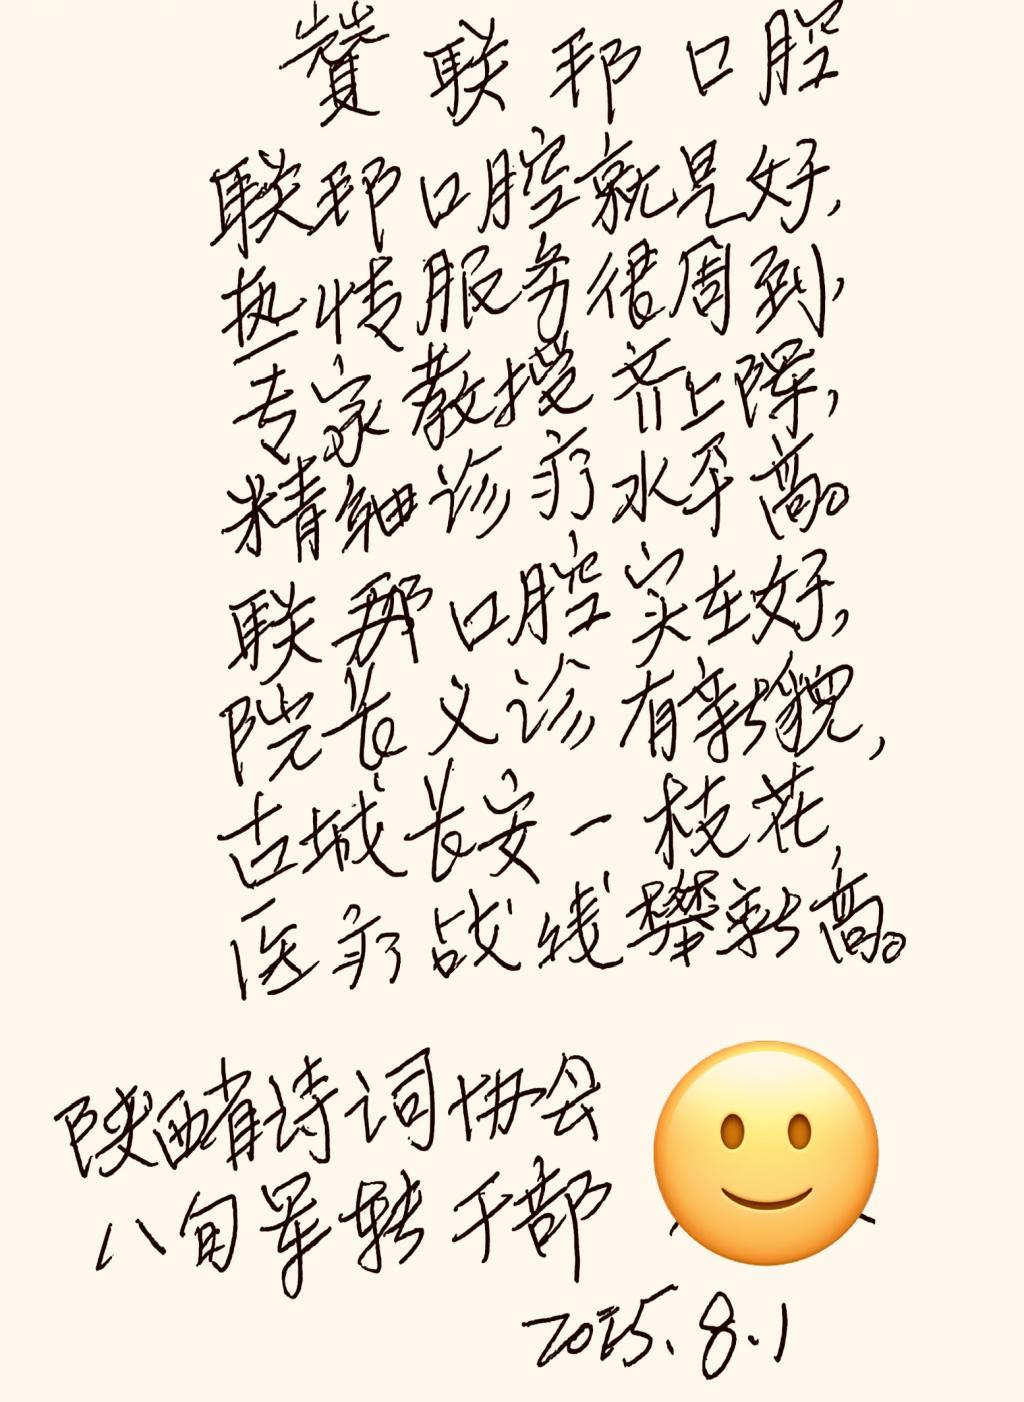 赞联邦口腔
联邦口腔就是好,
热情服务很周到,
专家教授齐上阵,
精细诊疗水平高。
联邦口腔实在好,
院长义诊有新貌,
古城长安一枝花,
医疗战线攀新高。
陕西省诗词协会
八旬军转干部
2025.8.1